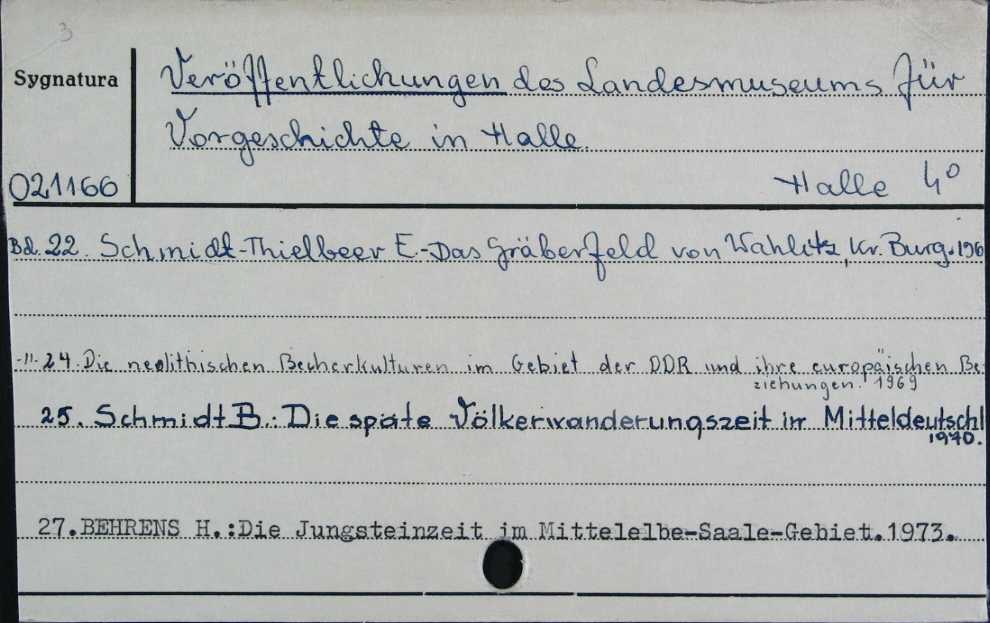 3
Sygnatura
Veröffentlichungen des Landesmuseums für
Vorgeschichte in Halle.
021166
Halle 4°
Bd. 22. Schmidt-Thielbeer E.-Das Gräberfeld von Wahlitz, Kr. Burg. 196
-"- 24. Die neolithischen Becherkulturen im Gebiet der DDR und ihre europäischen Be-
ziehungen. 1969
25. Schmidt B.: Die späte Völkerwanderungszeit in Mitteldeutschl
1970.
27.BEHRENS H.:Die Jungsteinzeit im Mittelelbe-Saale-Gebiet.1973.